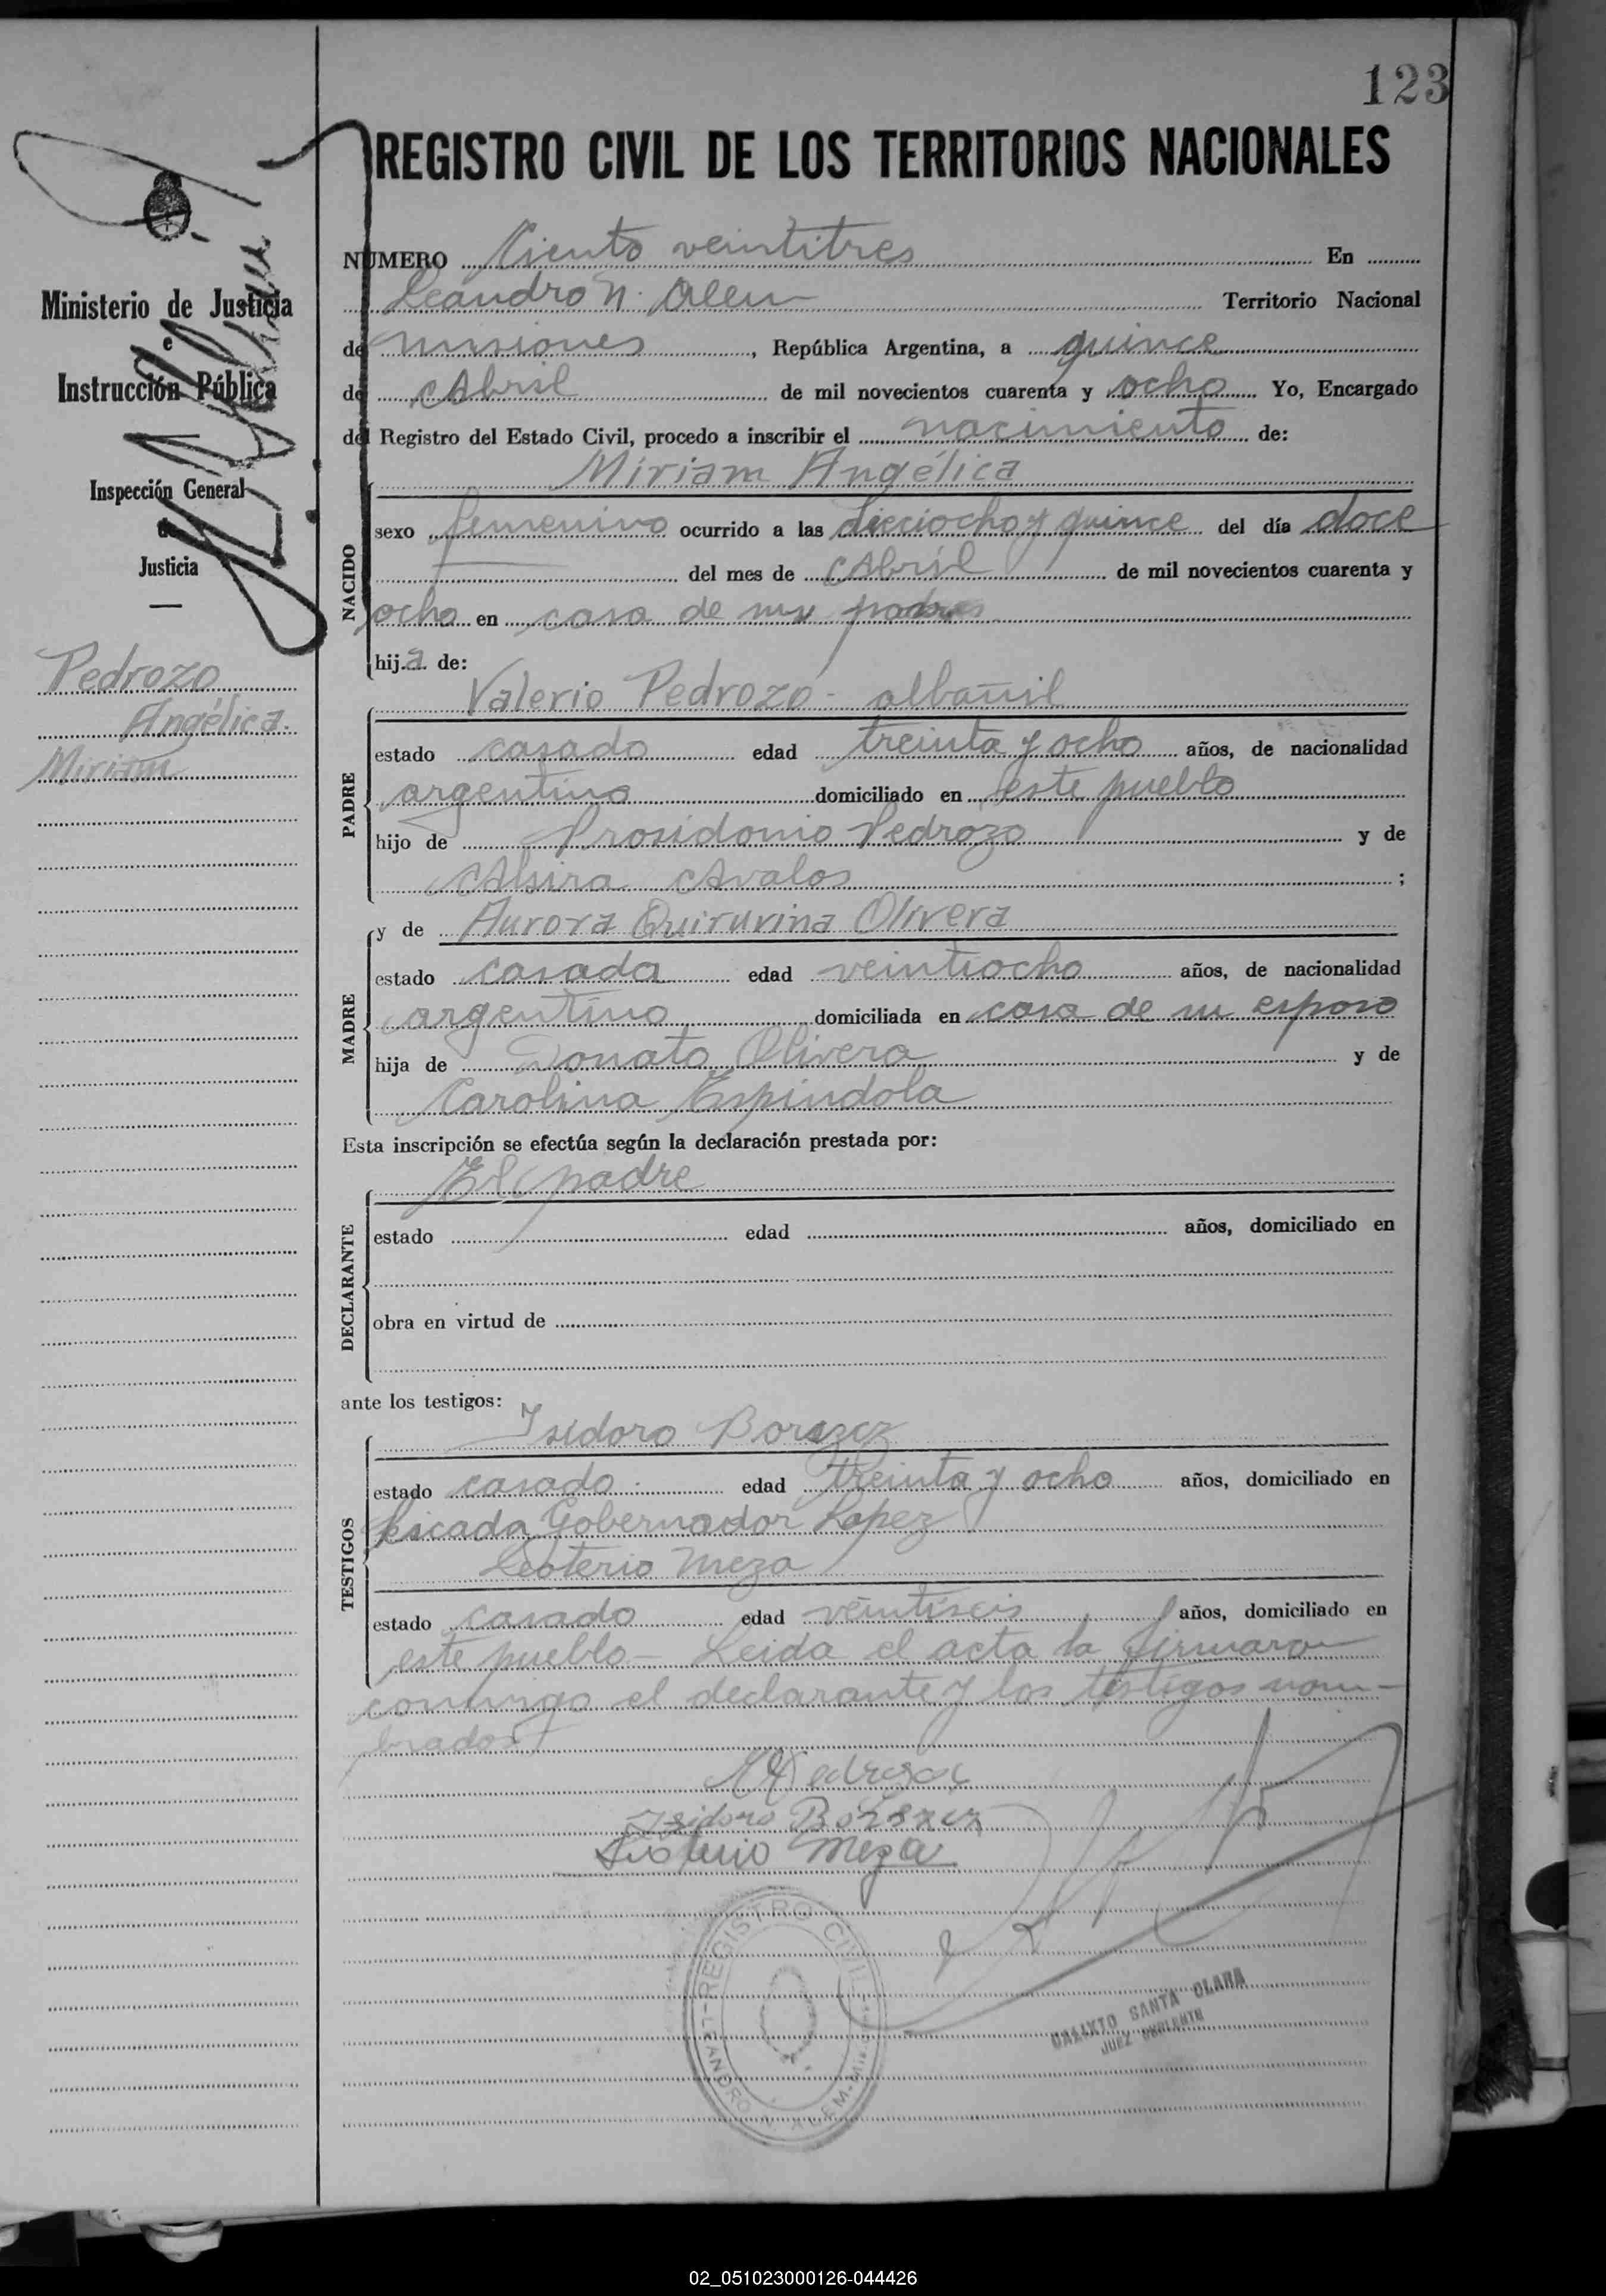 123
REGISTRO CIVIL DE LOS TERRITORIOS NACIONALES
Ministerio de Justicia
e
Instrucción Pública
Inspección General
de
Justicia
Pedrozo
Angélica.
Miriam
NUMERO Ciento veintitres En
Leandro N. Alem Territorio Nacional
de Misiones, República Argentina, a quince
de Abril de mil novecientos cuarenta y ocho Yo, Encargado
del Registro del Estado Civil, procedo a inscribir el nacimiento de:
Miriam Angélica
NACIDO
sexo femenino ocurrido a las dieciocho y quince del día doce
del mes de Abril de mil novecientos cuarenta y
ocho en casa de sus padres
hija de:
Valerio Pedrozo - albañil
PADRE
estado casado edad treinta y ocho años, de nacionalidad
argentino domiciliado en este pueblo
hijo de Prosidonio Pedrozo y de
Alsira Avalos ;
MADRE
y de Aurora Quirurina Olivera
estado casada edad veintiocho años, de nacionalidad
argentina domiciliada en casa de su esposo
hija de Donato Olivera y de
Carolina Espindola
Esta inscripción se efectúa según la declaración prestada por:
El padre
DECLARANTE
estado edad años, domiciliado en
obra en virtud de
ante los testigos:
Isidoro Borszcz
TESTIGOS
estado casado edad treinta y ocho años, domiciliado en
Picada Gobernador Lopez
Leoterio Meza
estado casado edad veintiseis años, domiciliado en
este pueblo - Leida el acta la firmaron
conmigo el declarante y los testigos nom-
brados
Isidoro Borszcz
Meza
REGISTRO CIVIL
LEANDRO N. ALEM
CALIXTO SANTA CLARA
JUEZ SUPLENTE
02_051023000126-044426